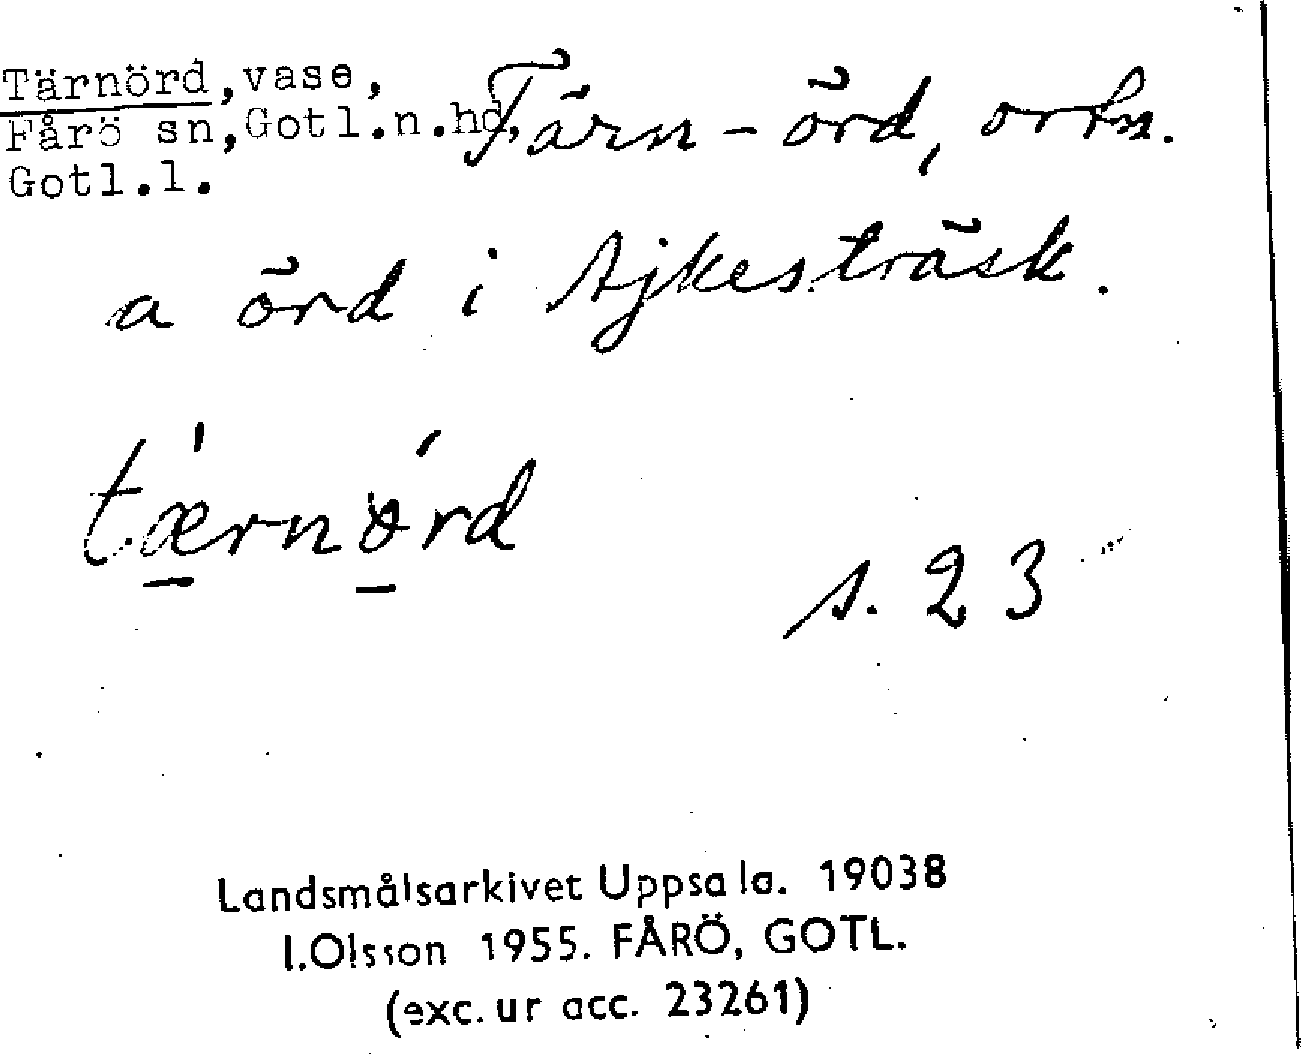 Tärnörd, vase,
Fårö sn, Gotl.n.hd,
Gotl.l.
Tärn-örd, ortn.
a örd i Ajkesträsk.
tærnörd
s. 23
Landsmålsarkivet Uppsala. 19038
I.Olsson 1955. FÅRÖ, GOTL.
(exc. ur acc. 23261)